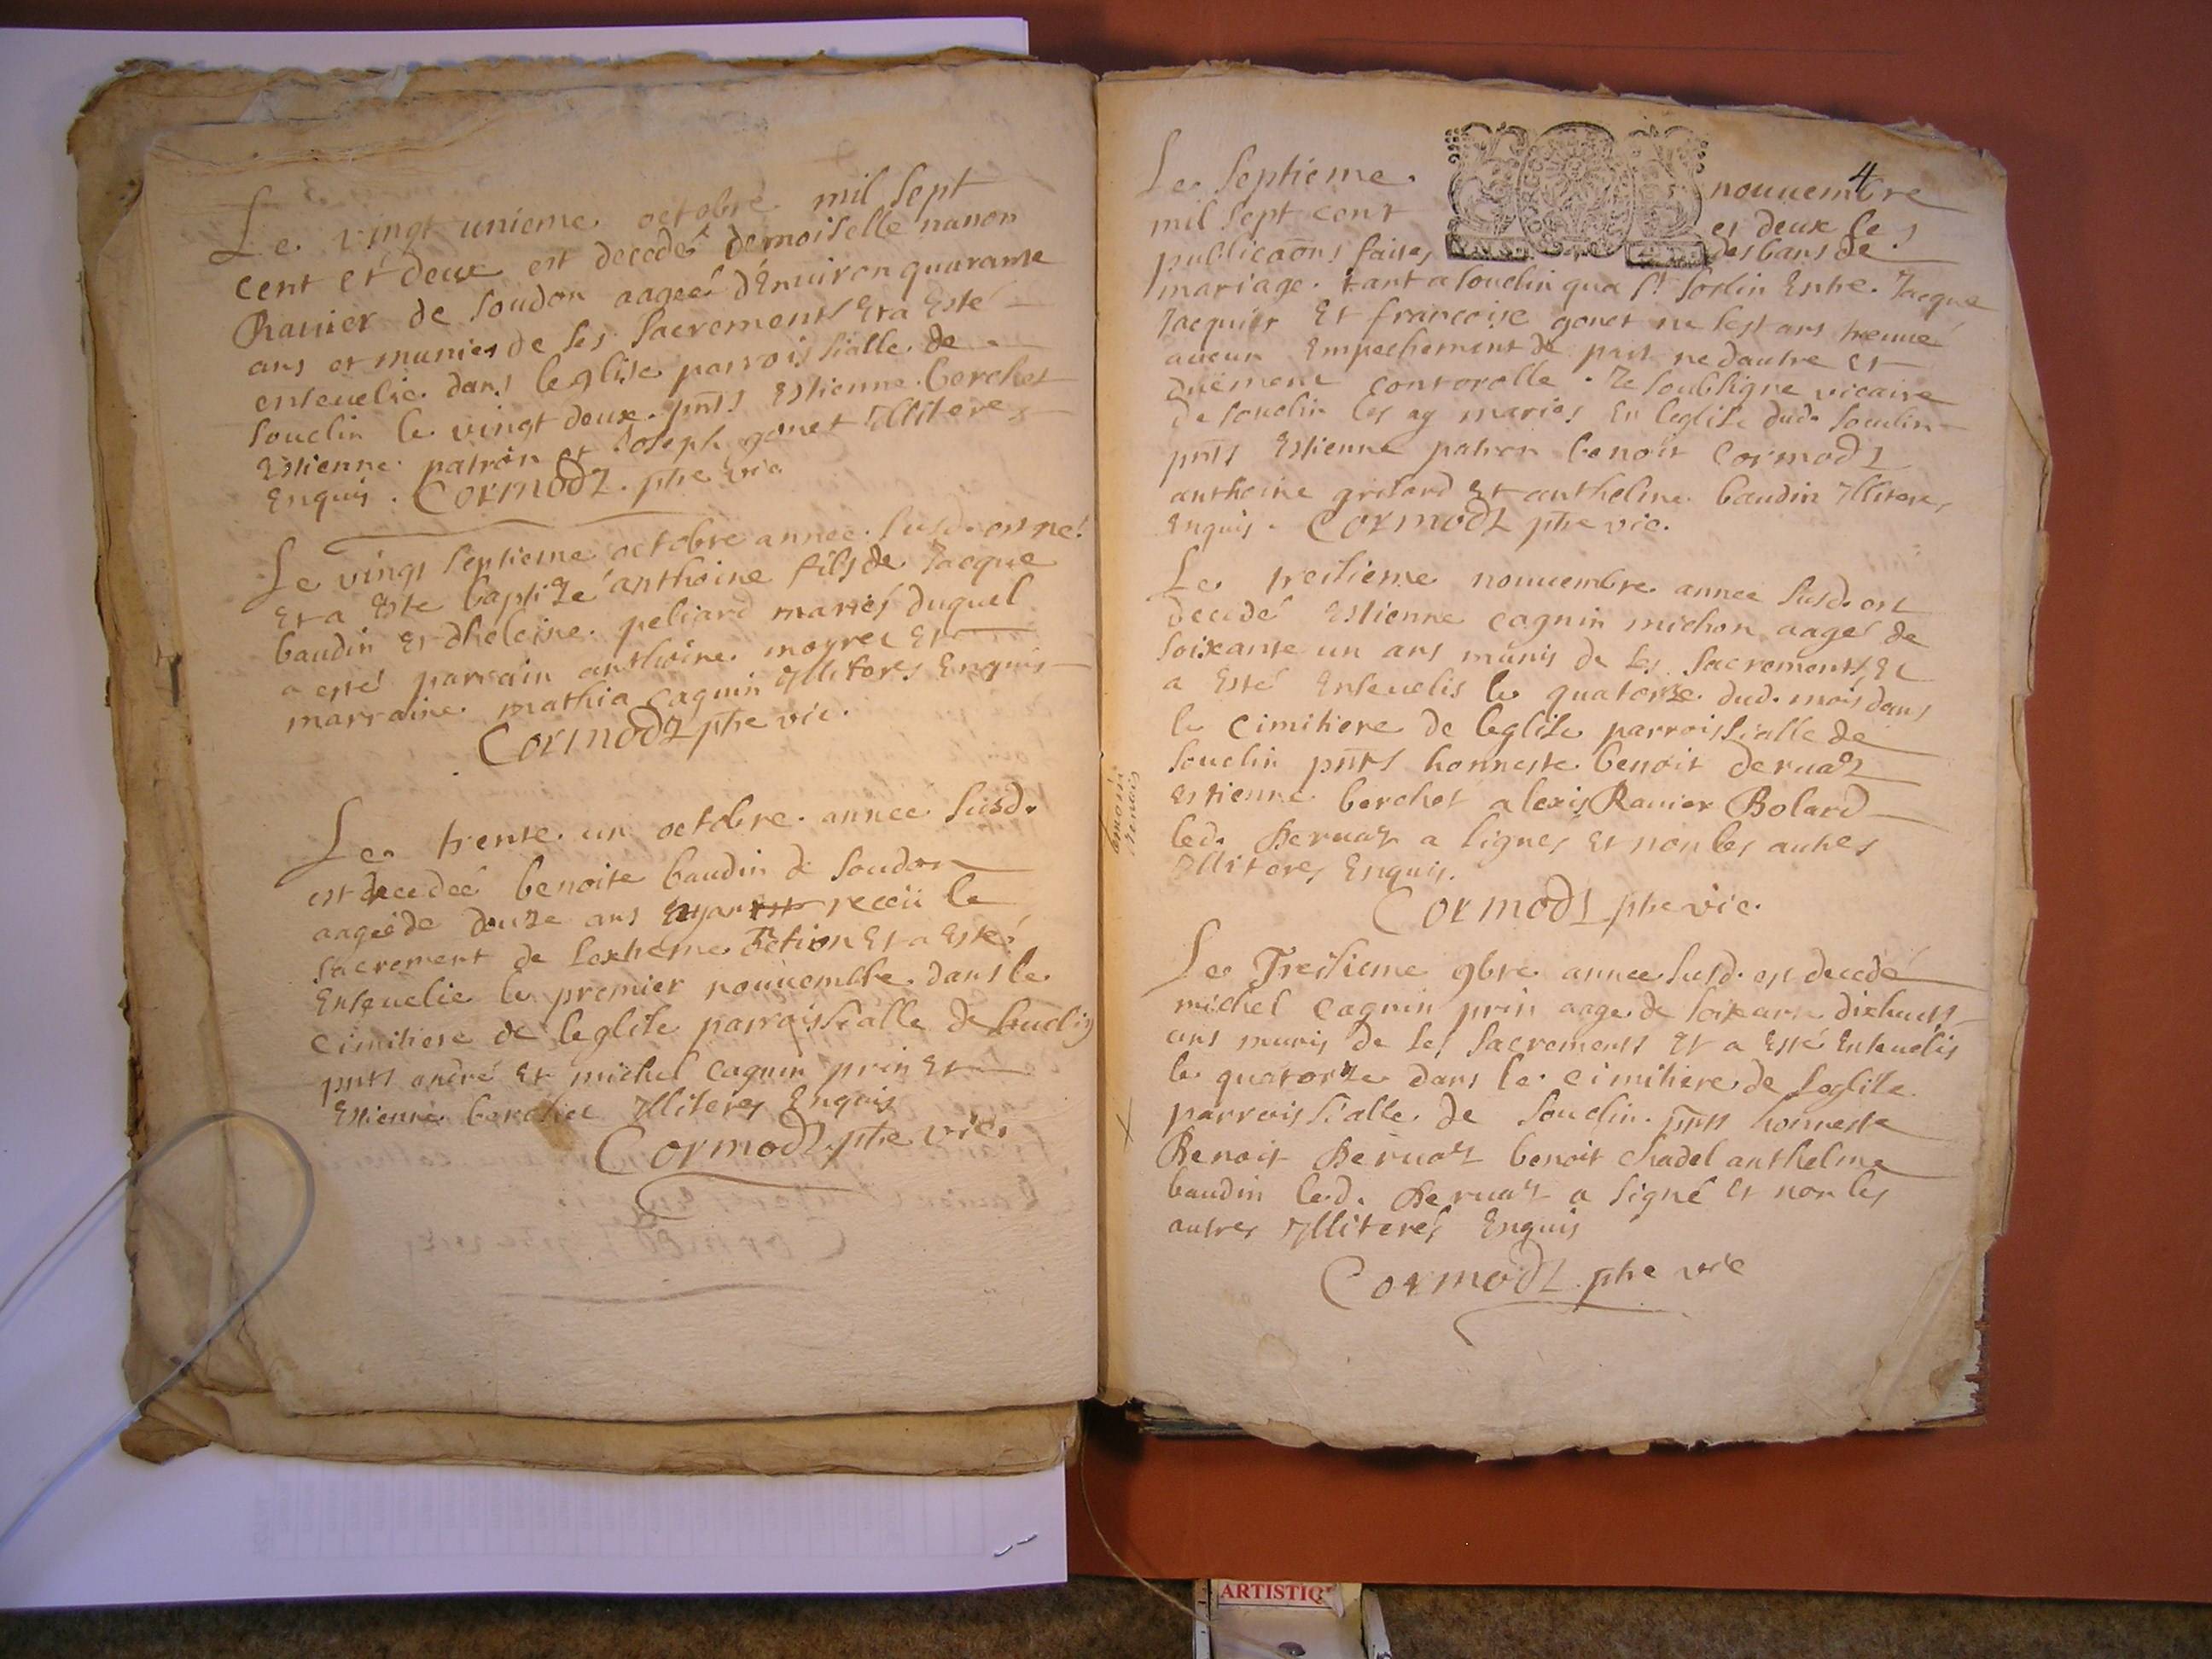 Le vingt unieme octobre mil sept
cent et deux est decedé demoiselle nanon
Ravier de Soudon aageé d'Environ quarante
ans et munies de ses sacrements Et a Esté
ensevelie dans leglise parroissialle de
Souclin le vingt deux pnts Estienne berchet
Estienne patron et Joseph gonet Illiteres
Enquis. Cormodz ptre vic
Le vingt septieme octobre annee susd. est né
Et a Este baptizé anthoine fils de Jacque
baudin Et dheleine peliard mariés duquel
a esté parrain anthoine morrel Et
marraine mathia cagnin Illiteres Enquis
Cormodz ptre vic.
Le trente un octobre annee susd.
est decedeé benoite baudin de Soudon
aageé de douze ans ayant receü le
sacrement de Lextreme onction Et a Esté
Ensevelie le premier nouvembre dans le
cimitiere de leglise parroissialle de Souclin
pnts andré Et michel cagnin prin Et
Estienne berchet Illiteres Enquis
Cormodz ptre vic.
4
Le septieme nouvembre
mil sept cent et deux les
publicaons faites des bans de
mariage tant a Souclin qua St Sorlin Entre Jacque
Jacquier Et francoise gonet ne sestant treuué
aucun Empechement de part ne dautre Et
duëment controolle Je soubsigne vicaire
de Souclin les ay mariés En leglise dud. Souclin
pnts Estienne patron benoit Cormodz
anthoine grilard Et anthelme baudin Illiteres
Enquis. Cormodz ptre vic.
Le treisieme nouvembre annee susd. est
decedé Estienne cagnin michon aagé de
soixante un ans munis de ses sacrements Et
a Esté Ensevelis le quatorze dud. mois dans
le cimitiere de leglise parroissialle de
Souclin pnts honneste benoit deruaz
Estienne berchet alexis Ravier Bolard
led. Deruaz a signes Et non les autres
Illiteres Enquis.
Cormodz ptre vic.
benoit
benoit
Le Treisieme 9bre annee susd. est decedé
michel cagnin prin aage de soixante dixhuit
ans munis de ses sacrements Et a Esté Ensevelis
le quatorze dans le cimitiere de Leglise
parroissialle de Souclin pnts honneste
Benoit Deruaz benoit chadel anthelme
baudin led. Deruaz a signé Et non les
autres Illiterés Enquis
Cormodz ptre vic
ARTISTIQ